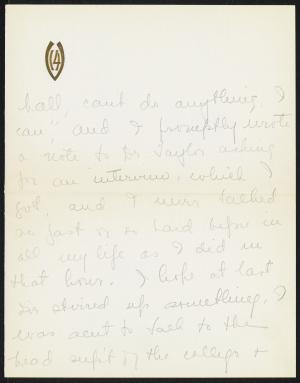 hall, can't do anything, I
can", and I promptly wrote
a note to Dr Taylor asking
for an interview, which I
got, and I never talked
so fast or so hard before in
all my life as I did in
that hour. I hope at last
I've stirred up something. I
was sent to talk to the
head supt of the college +